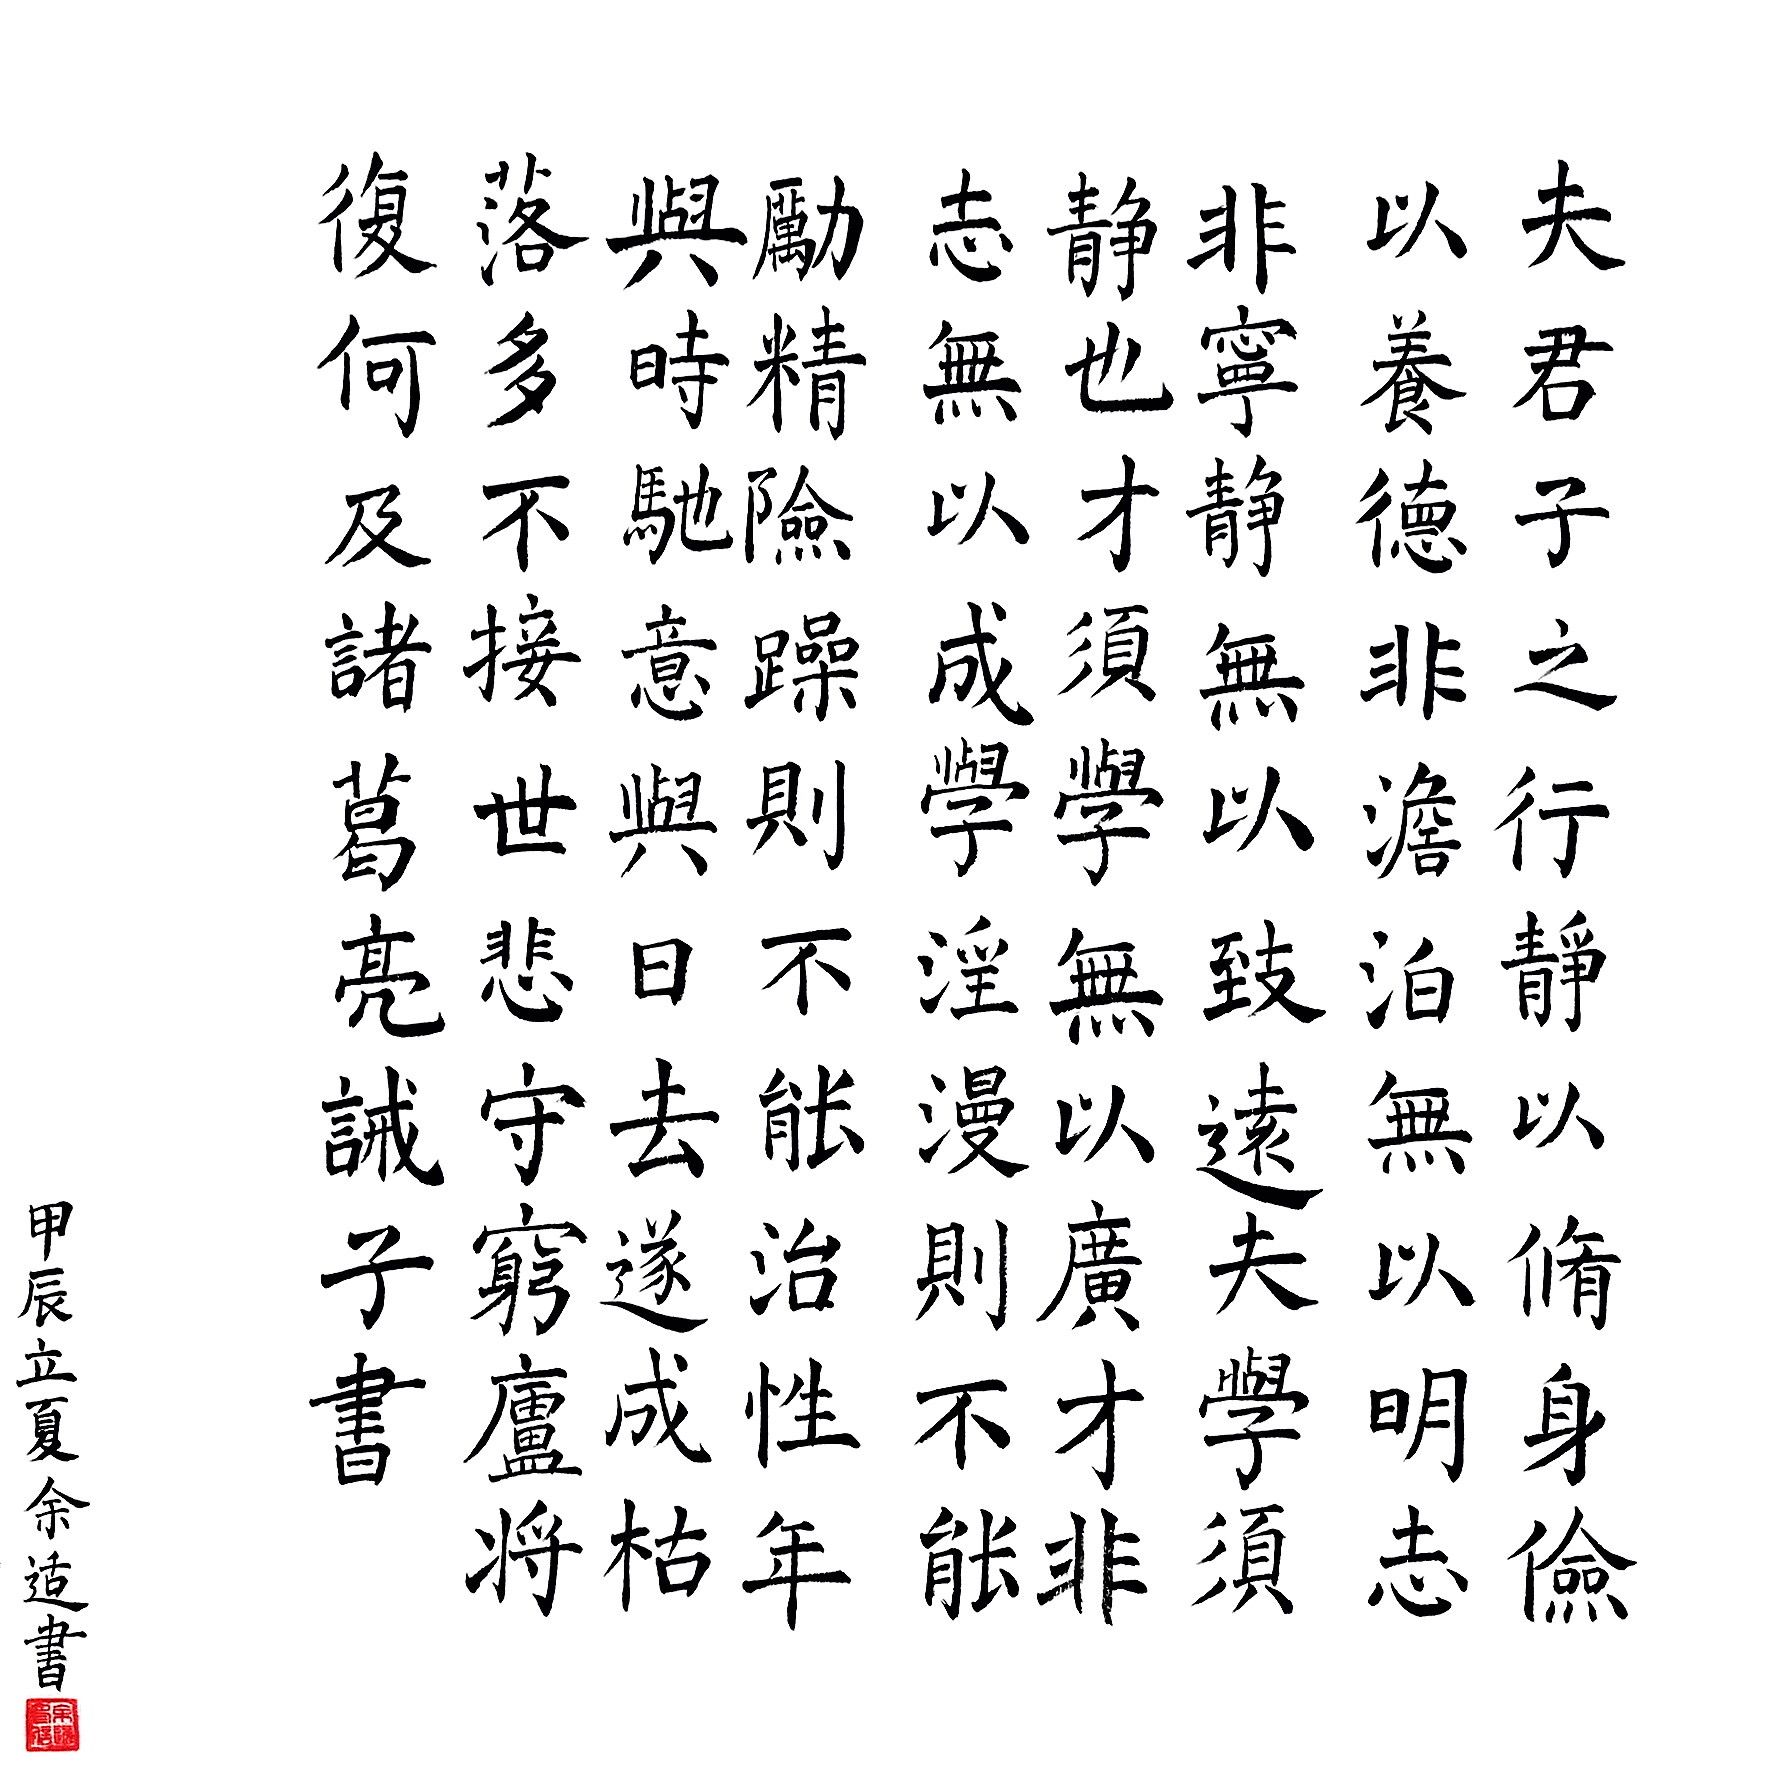 夫君子之行靜以脩身儉
以養德非澹泊無以明志
非寧静無以致遠夫學須
静也才須學學無以廣才非
志無以成學淫漫則不能
勵精險躁則不能治性年
與時馳意與日去遂成枯
落多不接世悲守窮廬将
復何及諸葛亮誡子書
甲辰立夏余适書